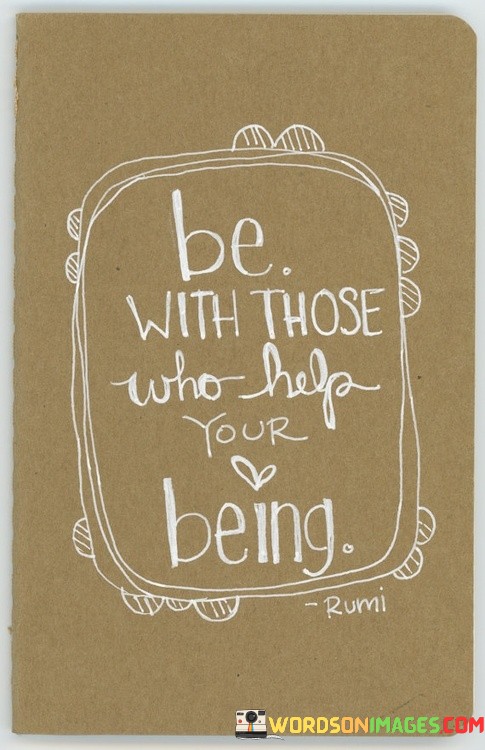 be.
WITH THOSE
who help
YOUR
being.
- Rumi
WORDSONIMAGES.COM